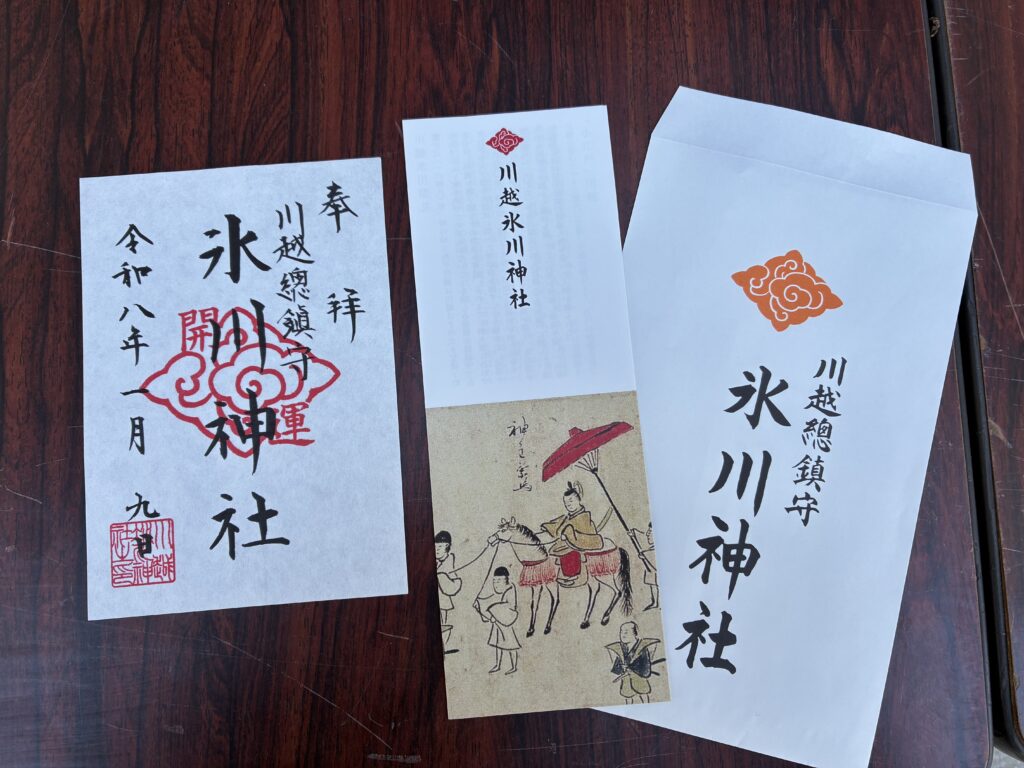 奉拝
川越總鎮守
氷川神社
開運
令和八年一月九日
川越氷川神社
神主乗馬
川越總鎮守
氷川神社